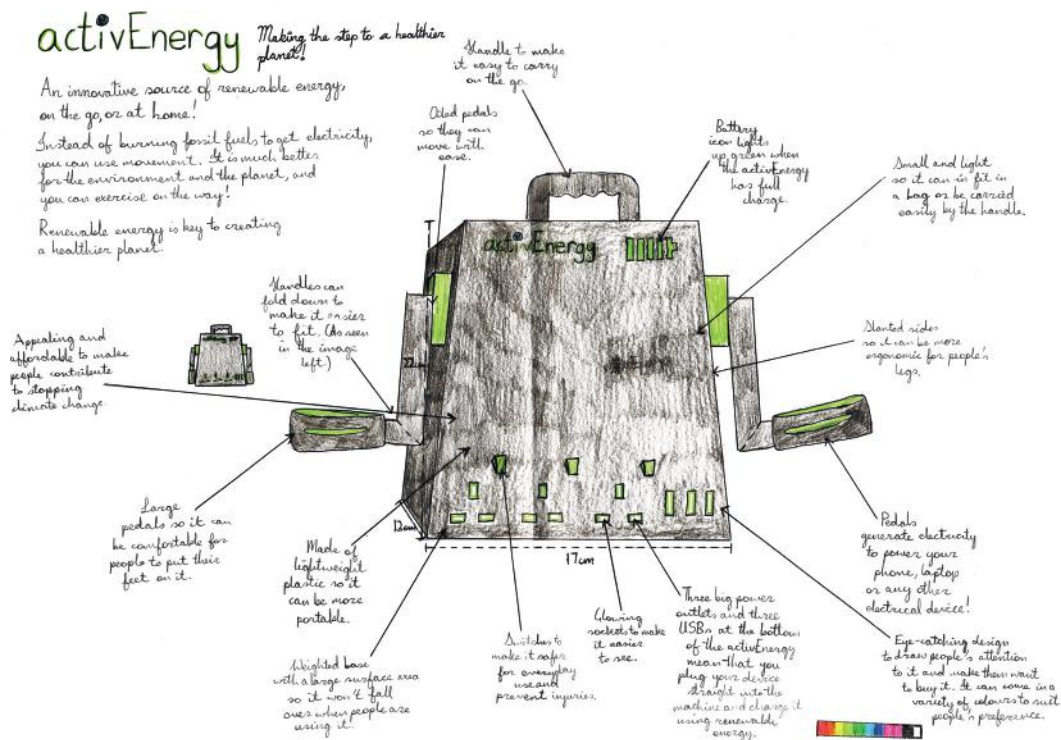 activEnergy
Making the step to a healthier
planet!
An innovative source of renewable energy,
on the go, or at home!
Instead of burning fossil fuels to get electricity,
you can use movement. It is much better
for the environment and the planet, and
you can exercise on the way!
Renewable energy is key to creating
a healthier planet.
Handle to make
it easy to carry
on the go.
Oiled pedals
so they can
move with
ease.
Battery
icon lights
up green when
the activEnergy
has full
charge.
Small and light
so it can in fit in
a bag or be carried
easily by the handle.
activEnergy
Handles can
fold down to
make it easier
to fit. (As seen
in the image
left.)
Appealing and
affordable to make
people contribute
to stopping
climate change.
22cm
Slanted sides
so it can be more
ergonomic for people's
legs.
Large
pedals so it can
be comfortable for
people to put their
feet on it.
12cm
17cm
Made of
lightweight
plastic so it
can be more
portable.
Pedals
generate electricity
to power your
phone, laptop
or any other
electrical device!
Weighted base
with a large surface area
so it won't fall
over when people are
using it.
Switches to
make it safer
for everyday
use and
prevent injuries.
Glowing
sockets to make
it easier
to see.
Three big power
outlets and three
USBs at the bottom
of the activEnergy
mean that you
plug your device
straight into the
machine and charge it
using renewable
energy.
Eye-catching design
to draw people's attention
to it and make them want
to buy it. It can come in a
variety of colours to suit
people's preference.